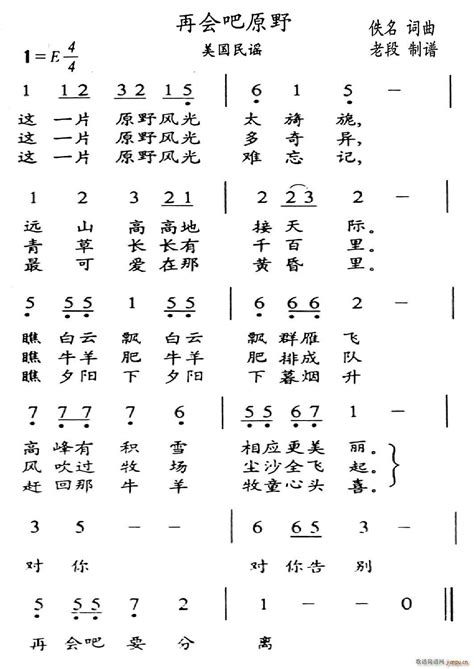 再会吧原野
美国民谣
佚名 词曲
老段 制谱
1=E 4/4
1 1 2 3 2 1 5 | 6 1 5 - |
这一片原野风光 太旖旎,
这一片原野风光 多奇异,
这一片原野风光 难忘记,
1 2 3 2 1 | 2 2 3 2 - |
远山高高地 接天际。
青草长长有 千百里。
最可爱在那 黄昏里。
5 5 5 1 5 5 | 6 6 6 2 - |
瞧白云飘白云 飘群雁飞
瞧牛羊肥牛羊 肥排成队
瞧夕阳下夕阳 下暮烟升
7 7 7 7 6 | 5 5 6 7 1 - |
高峰有积雪 相应更美丽。
风吹过牧场 尘沙全飞起。
赶回那牛羊 牧童心头喜。
3 5 - - | 6 6 5 3 - |
对你 对你告别
5 5 5 7 2 | 1 - - 0 ||
再会吧要分 离